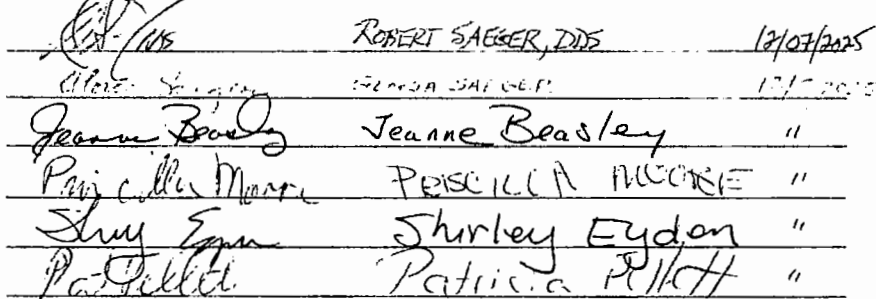 DDS ROBERT SAEGER, DDS 12/07/2025
SAEGER
Jeanne Beasley Jeanne Beasley "
Priscilla Moore PRISCILLA MOORE "
Shirley Eydon "
Pat Pellett Patricia Pellett "